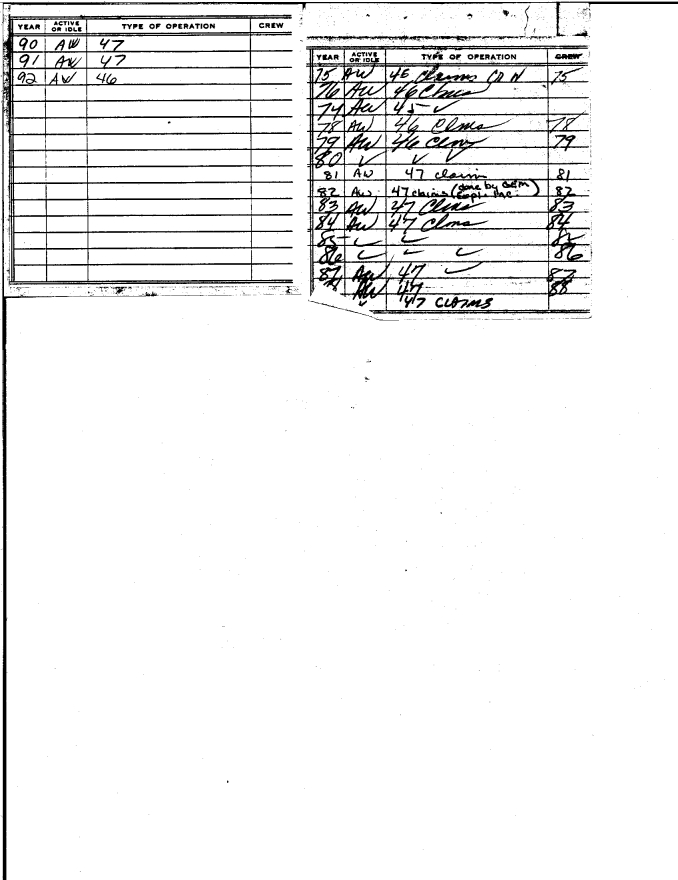 YEAR ACTIVE OR IDLE TYPE OF OPERATION CREW
90 AW 47
91 AW 47
92 AW 46
YEAR ACTIVE OR IDLE TYPE OF OPERATION CREW
75 AW 46 Claims 75
76 AW 46 Clms
74 AW 45 ✓
78 AW 46 Clms 78
79 AW 46 Clms 79
80 ✓ ✓ ✓
81 AW 47 claim 81
82 AW 47 claims (done by Expl. Inc.) 82
83 AW 47 Clms 83
84 AW 47 Clms 84
85 ✓ ✓ 85
86 ✓ ✓ ✓ 86
87 AW 47 ✓ 87
AW 47 88
✓ 47 CLAIMS